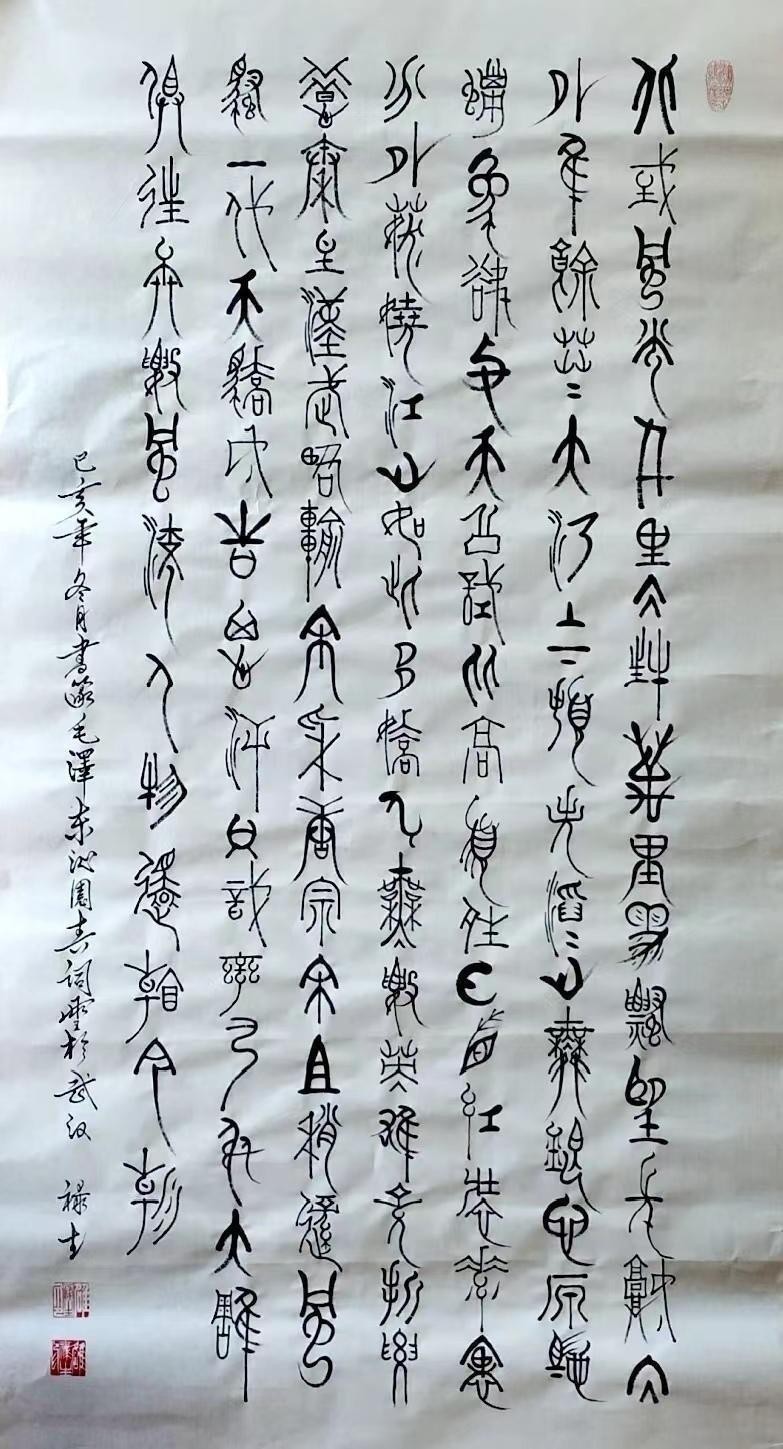 北國風光千里冰封萬里雪飄望長城内
外惟餘莽莽大河上下頓失滔滔山舞銀蛇原馳
蠟象欲與天公試比高須晴日看紅裝素裹
分外妖嬈江山如此多嬌引無數英雄競折腰
惜秦皇漢武略輸文采唐宗宋祖稍遜風
騷一代天驕成吉思汗只識彎弓射大雕
俱往矣數風流人物還看今朝
己亥年冬月書篆毛澤東沁園春词雪於武汉